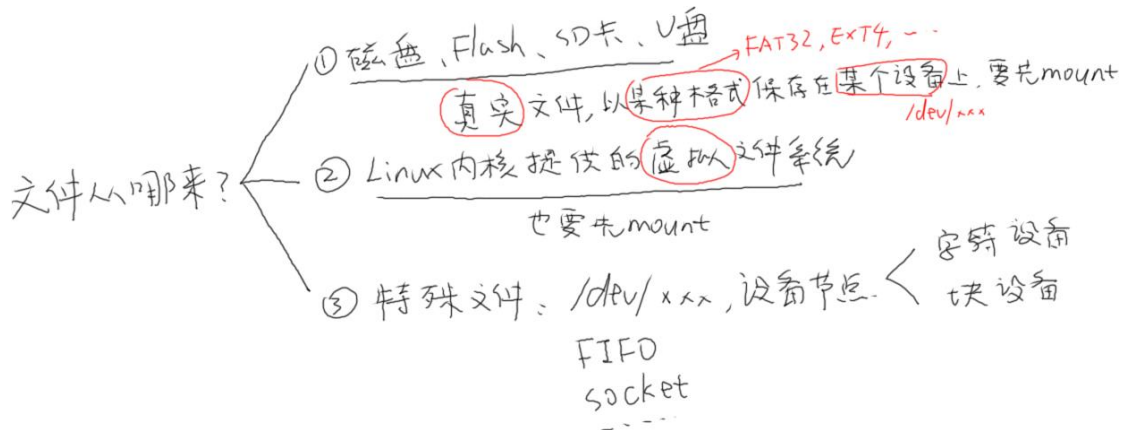 文件从哪来?
① 磁盘、Flash、SD卡、U盘
FAT32, EXT4, ...
真实文件, 以某种格式保存在某个设备上, 要先mount
/dev/xxx
② Linux内核提供的虚拟文件系统
也要先mount
③ 特殊文件: /dev/xxx, 设备节点
字符设备
块设备
FIFO
socket
.....